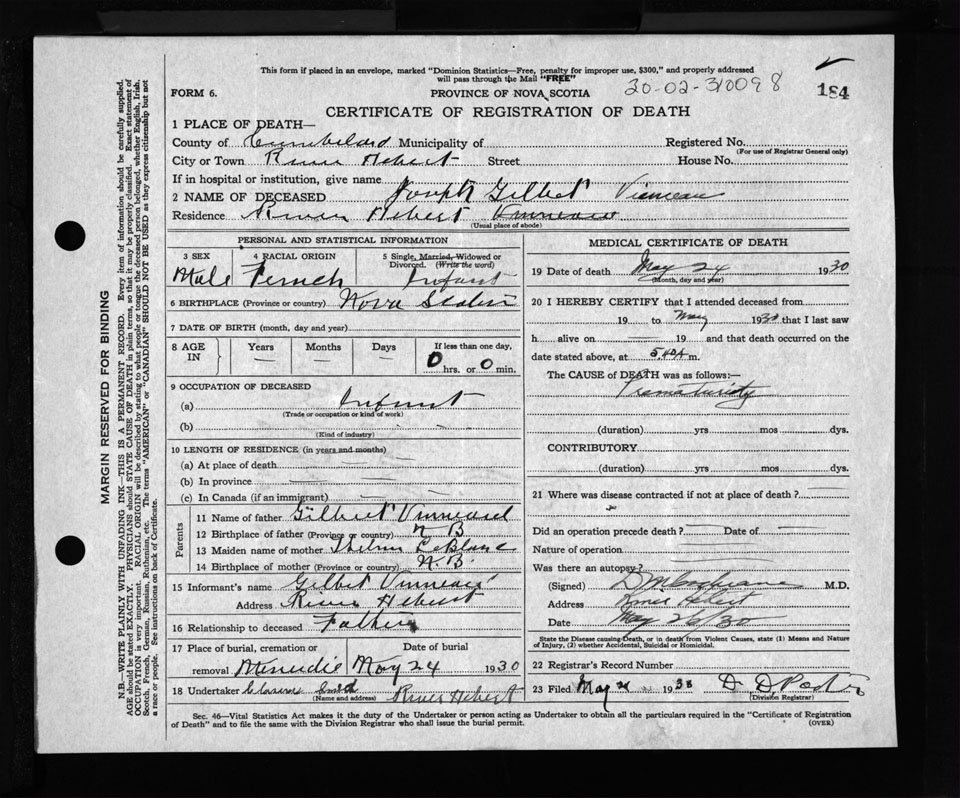 This form if placed in an envelope, marked "Dominion Statistics—Free, penalty for improper use, $300," and properly addressed
will pass through the Mail "FREE"
FORM 6.
PROVINCE OF NOVA SCOTIA
20-02-310098
184
CERTIFICATE OF REGISTRATION OF DEATH
1 PLACE OF DEATH—
County of Cumberland Municipality of Registered No.
(For use of Registrar General only)
City or Town River Hebert Street House No.
If in hospital or institution, give name
2 NAME OF DECEASED Joseph Gilbert Vienneau
Residence River Hebert
(Usual place of abode)
PERSONAL AND STATISTICAL INFORMATION
3 SEX 4 RACIAL ORIGIN 5 Single, Married, Widowed or
Divorced. (Write the word)
Male French Infant
6 BIRTHPLACE (Province or country) Nova Scotia
7 DATE OF BIRTH (month, day and year)
8 AGE IN Years Months Days If less than one day,
— — — 0 hrs. or 0 min.
9 OCCUPATION OF DECEASED
(a) Infant
(Trade or occupation or kind of work)
(b)
(Kind of industry)
10 LENGTH OF RESIDENCE (in years and months)
(a) At place of death
(b) In province
(c) In Canada (if an immigrant)
Parents
11 Name of father Gilbert
12 Birthplace of father (Province or country) N B
13 Maiden name of mother LeBlanc
14 Birthplace of mother (Province or country) N.B.
15 Informant's name Gilbert
Address River Hebert
16 Relationship to deceased Father
17 Place of burial, cremation or Date of burial
removal Menudie May 24 1930
18 Undertaker
(Name and address) River Hebert
MEDICAL CERTIFICATE OF DEATH
19 Date of death May 24 1930
(Month, day and year)
20 I HEREBY CERTIFY that I attended deceased from
19 to May 1930 that I last saw
h alive on 19 and that death occurred on the
date stated above, at m.
The CAUSE of DEATH was as follows:—
Prematurity
(duration) yrs mos dys.
CONTRIBUTORY
(duration) yrs mos dys.
21 Where was disease contracted if not at place of death?
Did an operation precede death? Date of
Nature of operation
Was there an autopsy?
(Signed) D M Cochrane M.D.
Address River Hebert
Date May 26/30
State the Disease causing Death, or in death from Violent Causes, state (1) Means and Nature
of Injury, (2) whether Accidental, Suicidal or Homicidal.
22 Registrar's Record Number
23 Filed May 19
(Division Registrar)
Sec. 46—Vital Statistics Act makes it the duty of the Undertaker or person acting as Undertaker to obtain all the particulars required in the "Certificate of Registration
of Death" and to file the same with the Division Registrar who shall issue the burial permit. (OVER)
MARGIN RESERVED FOR BINDING
N.B.—WRITE PLAINLY WITH UNFADING INK—THIS IS A PERMANENT RECORD. Every item of information should be carefully supplied.
AGE should be stated EXACTLY. PHYSICIANS should STATE CAUSE OF DEATH in plain terms, so that it may be properly classified. Exact statement of
OCCUPATION is very important. RACIAL ORIGIN will be described by stating to what people or tongue the deceased person belonged, whether English, Irish,
Scotch, French, German, Russian, Ruthenian, etc. The terms "AMERICAN" or "CANADIAN" SHOULD NOT BE USED as they express citizenship but not
a race or people. See instructions on back of Certificate.